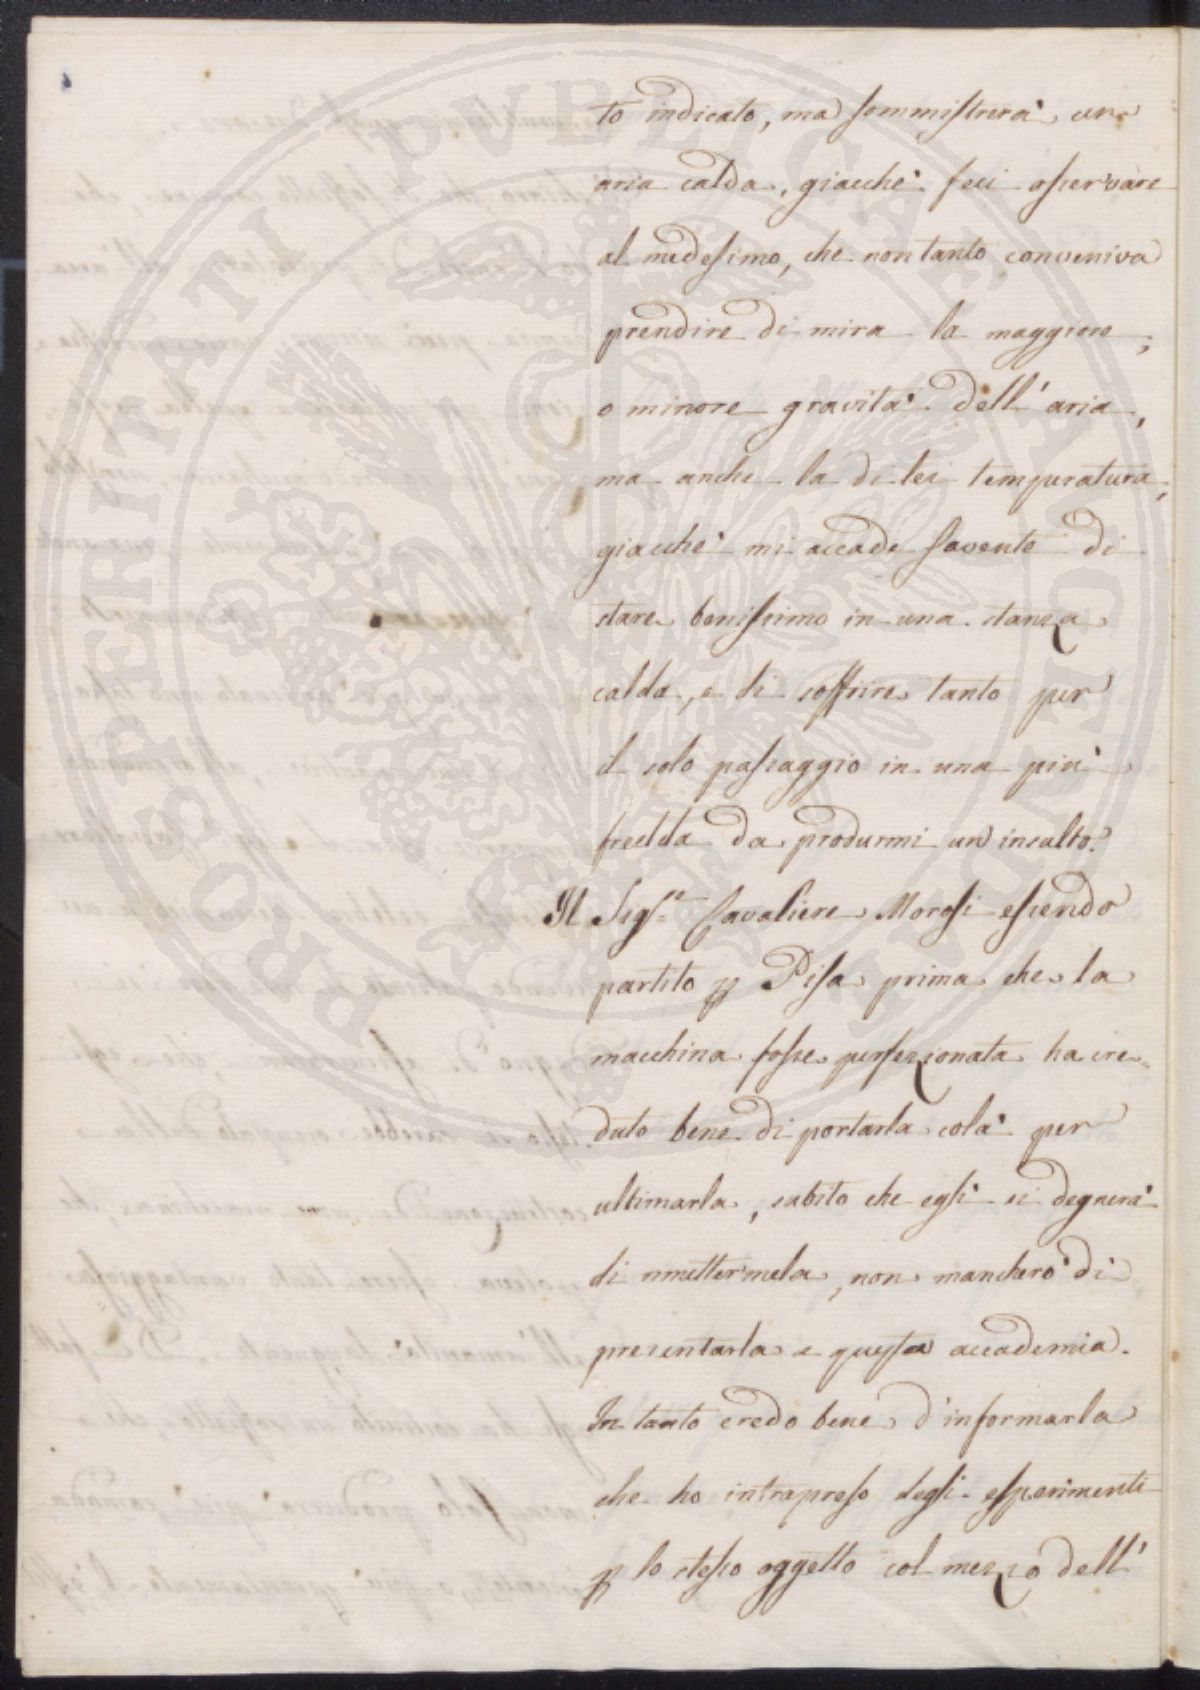 PROSPERITATI PVBLICAE AVGENDAE
to indicato, ma somministrerà un
aria calda, giacchè feci osservare
al medesimo, che non tanto conveniva
prendire di mira la maggiore,
o minore gravità dell' aria,
ma anche la di lei temperatura,
giacchè mi accade sovente di
stare benissimo in una stanza
calda, e di soffrire tanto per
il solo passaggio in una più
fredda da produrmi un insalto.
Il Sig.re Cavaliere Morosi essendo
partito p Pisa prima che la
macchina fosse perfezionata ha cre-
duto bene di portarla colà per
ultimarla, subito che egli si degnerà
di rimettermela, non mancherò di
presentarla a questa accademia.
In tanto credo bene d'informarla
che ho intrapreso degli esperimenti
p lo stesso oggetto col mezzo dell'